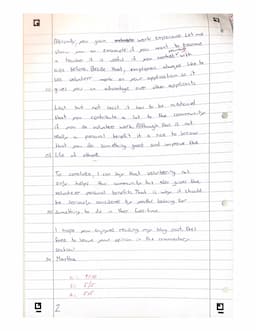 Secondly, you gain work experience. Let me
show you an example: if you want to become
a teacher it is useful if you worked with
kids before. Beside that, employers always like to
see volunteer work on your application as it
gives you an advantage over other applicants.
Last but not least it has to be mentioned
that you contribute a lot to the community
if you do volunteer work. Although this is not
really a personal benefit it is nice to know
that you do something good and improve the
life of others.
To conclude, I can say that volunteering not
only helps the community but also gives the
volunteer personal benefits. That is why it should
be seriously considered by people looking for
something to do in their free time.
I hope you enjoyed reading my blog post. Feel
free to leave your opinion in the commentary
section!
Martha
5/5
5/5
2